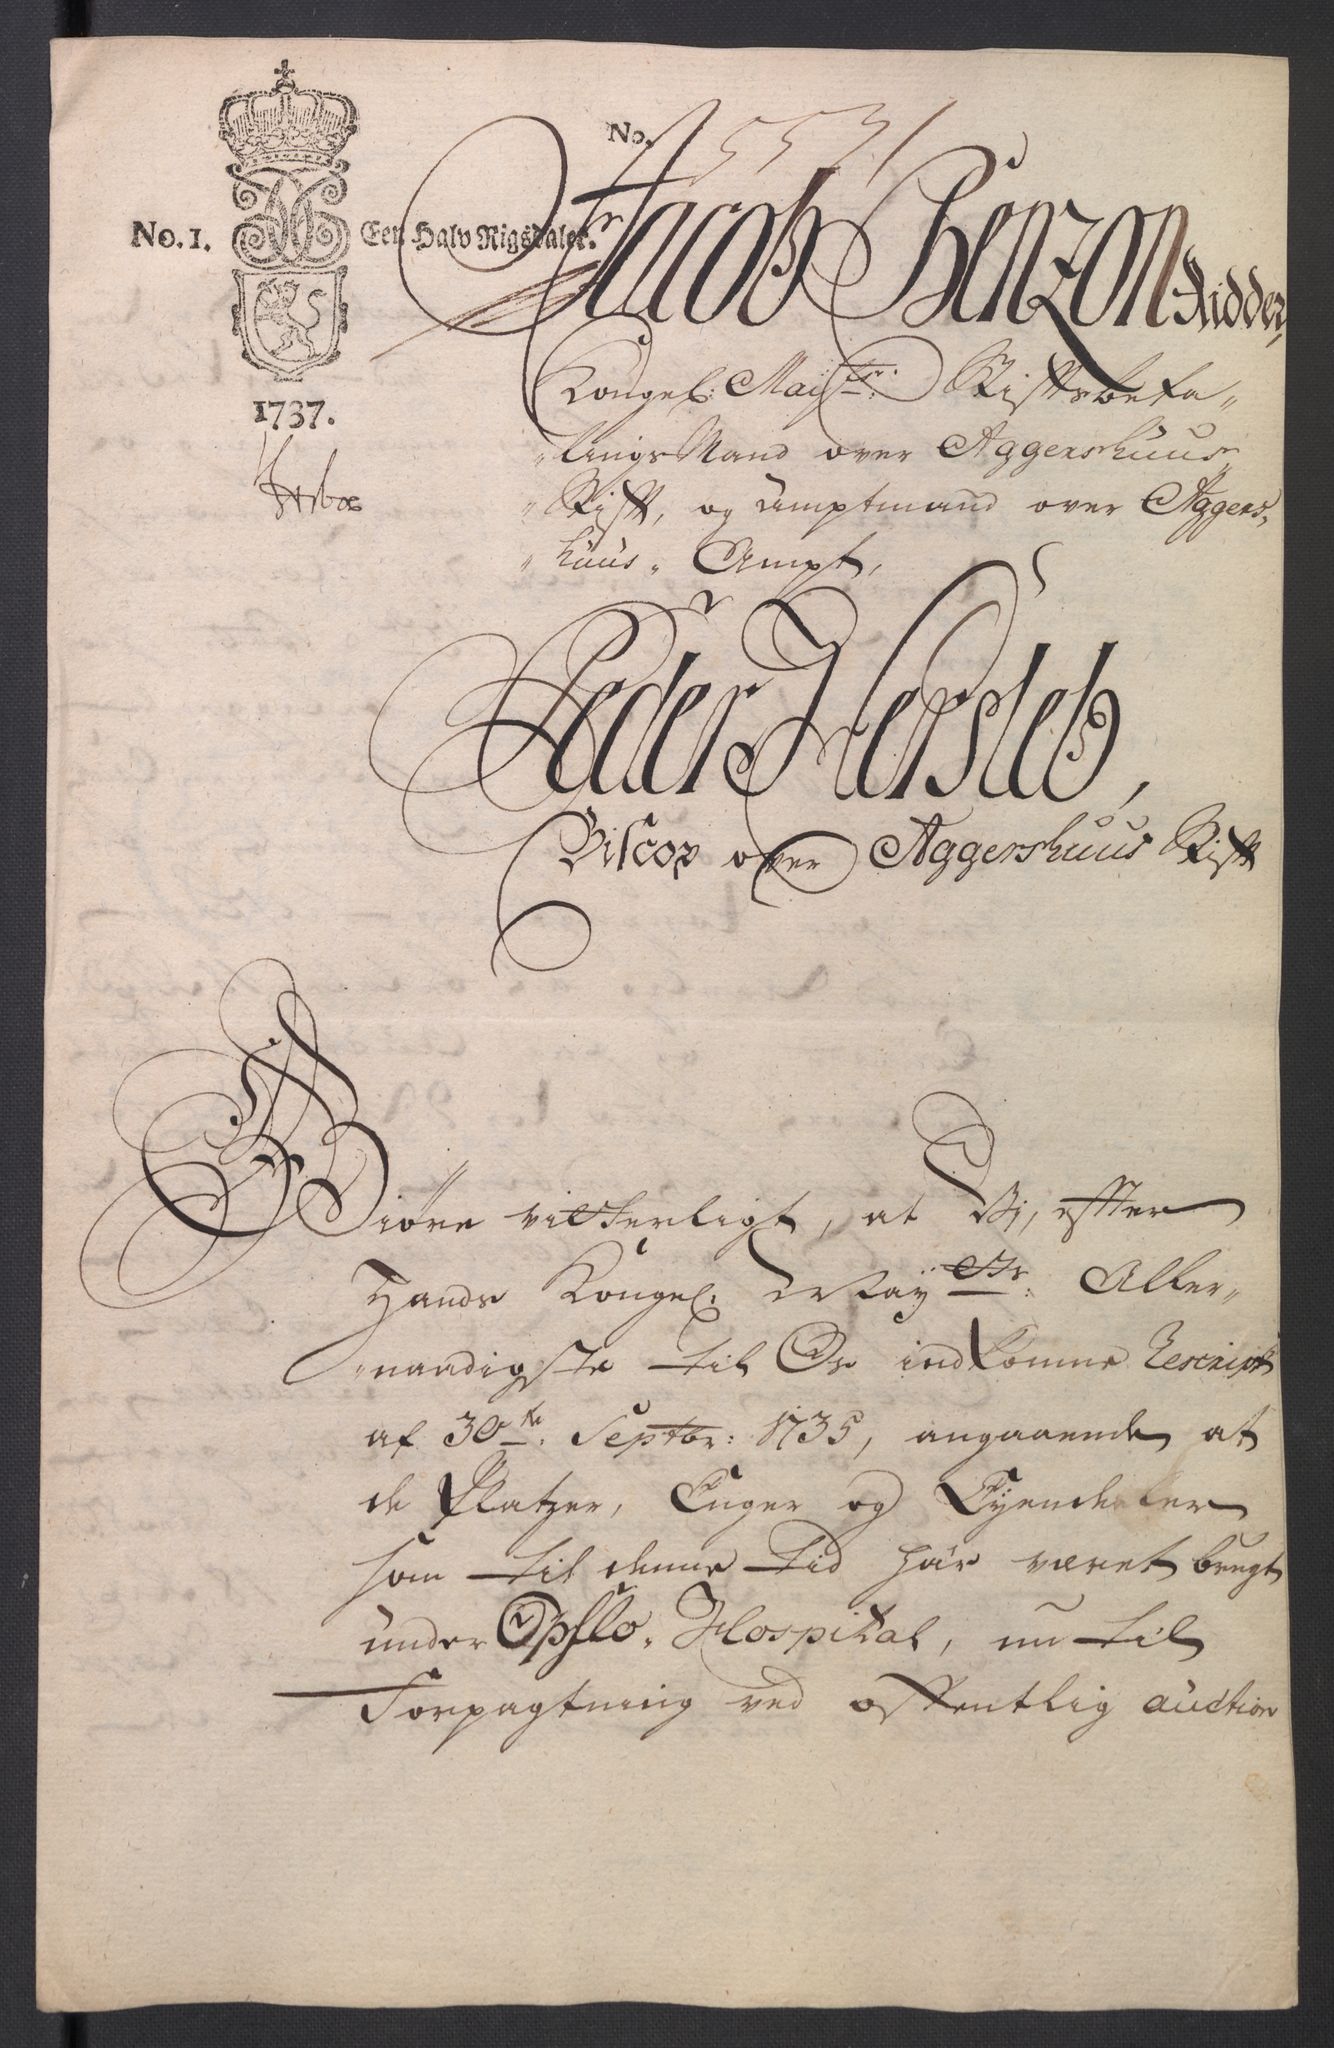 No. 5531
No. 1. Een Halv Rigsdaler.
1737.
Jacob Benzon Ridder,
Kongel: Maysts: Stiftsbefa„
„lings Mand over Aggershuus„
„Stift, og Amptmand over Aggers„
„huus„ Ampt,
Peder Hersleb,
Biscop over Aggershuus Stift
Giöre vitterligt, at Vi, efter
Hands Kongel. Mayts: Aller„
„naadigste til Os indkomne Rescript
af 30te. Septbr: 1735, angaaende at
de Platzer, Enger og Eyendeeler
som til denne tid har været brugt
under Opslo„ Hospital, nu til
Forpagtning ved offentlig auction